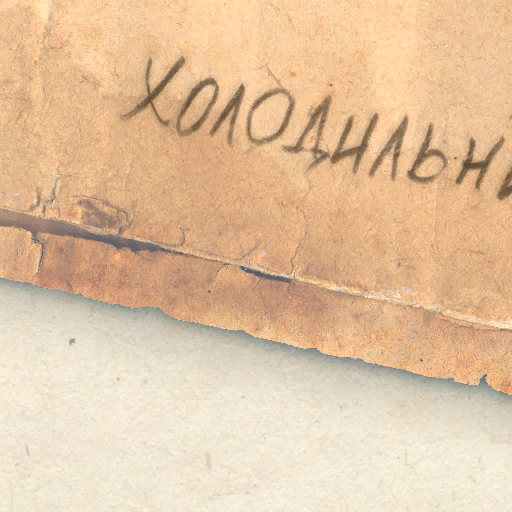 ХОЛОДИЛЬНИ